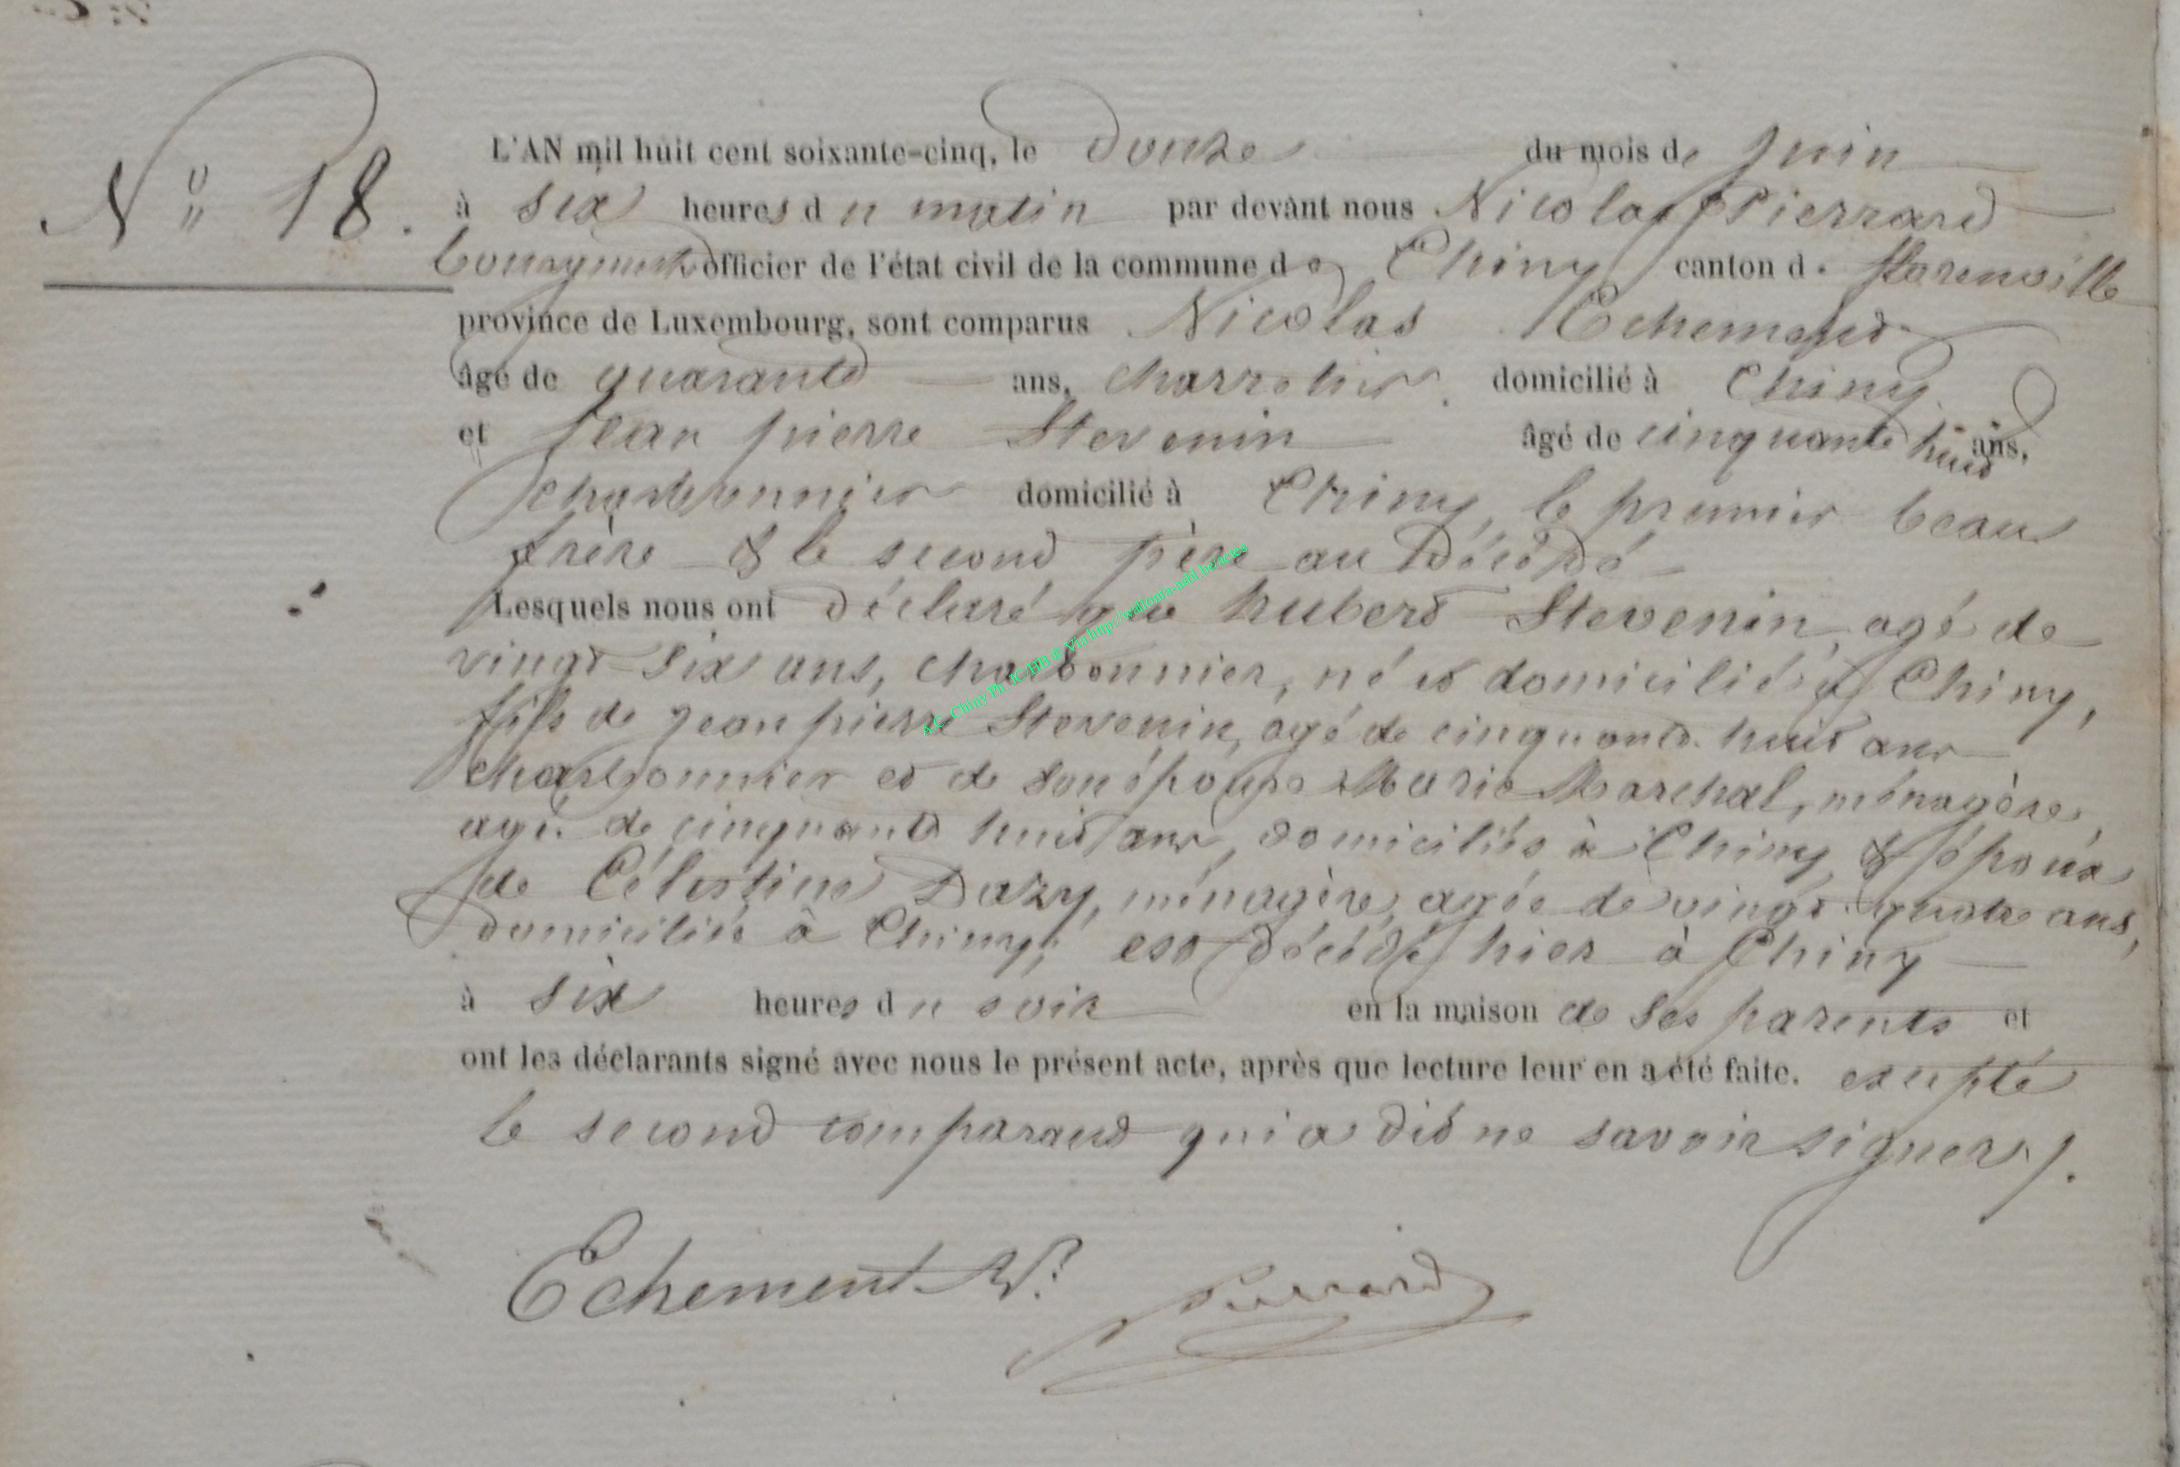 N° 18.
L'AN mil huit cent soixante-cinq, le douze du mois de juin
à six heures du matin par devant nous Nicolas Pierrard
Bourgmestre officier de l'état civil de la commune de Chiny canton de florenville
province de Luxembourg, sont comparus Nicolas Echement
âgé de quarante ans, charretier domicilié à Chiny
et Jean pierre Stevenin âgé de cinquante huit ans,
charbonnier domicilié à Chiny, le premier beau
frère & le second père au Décédé
Lesquels nous ont déclaré que hubert Stevenin, agé de
vingt-six ans, charbonnier, né et domicilié à Chiny,
fils de jean pierre Stevenin, agé de cinquante huit ans
charbonnier et de son épouse Marie Marchal, ménagère,
agé. de cinquante huit ans, domiciliés à Chiny & époux
de Célestine Dazy, ménagère, agée de vingt quatre ans,
domiciliée à Chiny, est décédé hier à Chiny
à six heures du soir en la maison de ses parents et
ont les déclarants signé avec nous le présent acte, après que lecture leur en a été faite. excepté
le second comparant qui a dit ne savoir signer /.
Echement N.
Pierrard
A.C. Chiny Ph. via http://